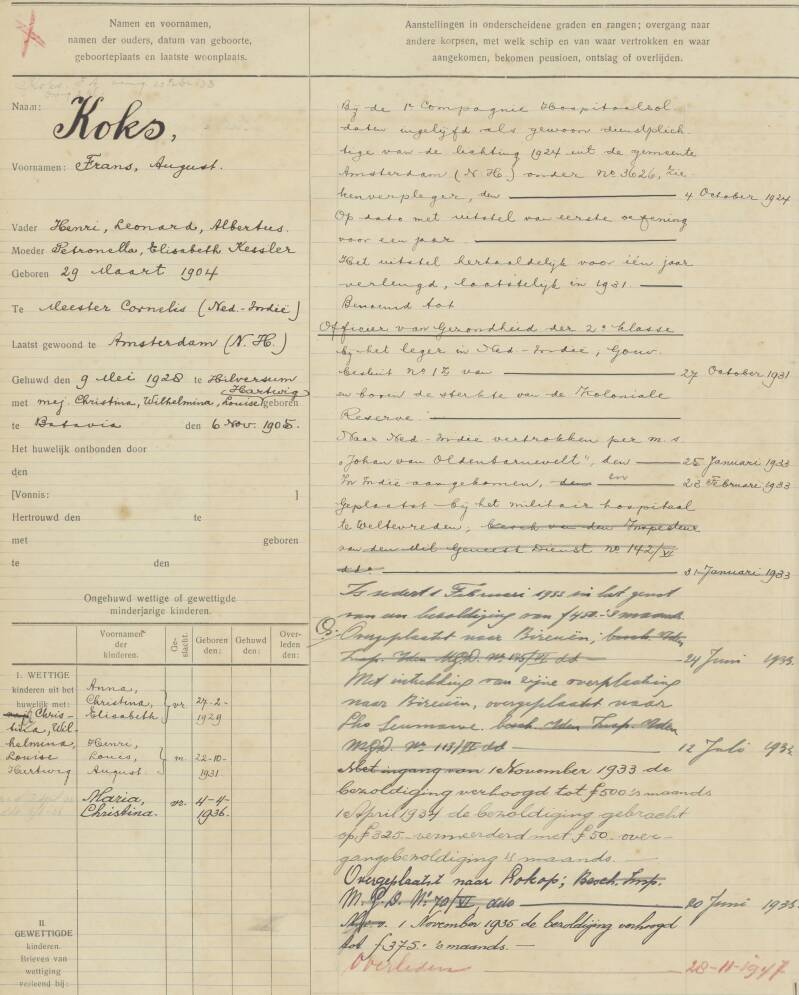 Namen en voornamen,
namen der ouders, datum van geboorte,
geboorteplaats en laatste woonplaats.
Naam: Koks,
Voornamen: Frans, August.
Vader Henri, Leonard, Albertus.
Moeder Petronella, Elisabeth Kessler
Geboren 29 Maart 1904
Te Meester Cornelis (Ned-Indië)
Laatst gewoond te Amsterdam (N.H.)
Gehuwd den 9 Mei 1928 te Hilversum
Hartwig
met mej. Christina, Wilhelmina, Louise geboren
te Batavia den 6 Nov. 1905.
Het huwelijk ontbonden door
den
[Vonnis: ]
Hertrouwd den te
met geboren
te den
Ongehuwd wettige of gewettigde
minderjarige kinderen.
Voornamen der kinderen. Geslacht. Geboren den: Gehuwd den: Overleden den:
I. WETTIGE
kinderen uit het
huwelijk met:
Christina, Wilhelmina,
Louise
Hartwig
Anna,
Christina, vr. 27-2-
Elisabeth 1929
Henri,
Louis, m. 22-10-
August 1931.
Maria, vr. 4-4-
Christina. 1936.
II.
GEWETTIGDE
kinderen.
Brieven van
wettiging
verleend bij:
Aanstellingen in onderscheidene graden en rangen; overgang naar
andere korpsen, met welk schip en van waar vertrokken en waar
aangekomen, bekomen pensioen, ontslag of overlijden.
Bij de 1e Compagnie Hospitaalsol
daten ingelijfd als gewoon dienstplich
tige van de lichting 1924 uit de gemeente
Amsterdam (N.H.) onder No 3626, zie
kenverpleger, den 4 October 1924
Op dato met uitstel van eerste oefening
voor een jaar
Het uitstel herhaaldelijk voor één jaar
verlengd, laatstelijk in 1931.
Benoemd tot
Officier van Gezondheid der 2e klasse
bij het leger in Ned-Indië, Gouv.
besluit No 12 van 27 October 1931
en boven de sterkte van de Koloniale
Reserve.
Naar Ned-Indië vertrokken per m.s.
"Johan van Oldenbarnevelt", den 25 Januari 1933
In Indië aangekomen, den en 23 Februari 1933
Geplaatst bij het militair hospitaal
te Weltevreden, besch. van den Inspecteur
van den Mil. Geneesk Dienst No 142/VI
dto. 31 Januari 1933
Is sedert 1 Februari 1933 in het genot
van een bezoldiging van f 450.- 's maands.
Overgeplaatst naar Bireuën, besch. v/den
Insp. v/den M.G.D. No. 175/VI dd 24 Juni 1933.
Met intrekking van zijne overplaatsing
naar Bireuën, overgeplaatst naar
Lho Seumawe. besch. v/den Insp. v/den
M.G.D. No. 113/VI dd 12 Juli 193
Met ingang van 1 November 1933 de
bezoldiging verhoogd tot f 500 's maands
1 April 1934 de bezoldiging gebracht
op f 325 vermeerderd met f 50 over-
gangsbezoldiging 's maands.
Overgeplaatst naar Rokop; Besch. Insp.
M.G.D. No 70/VI, ddo 20 Juni 193
1 November 1935 de bezoldiging verhoogd
tot f 375.- 's maands.
Overleden 28-11-1947